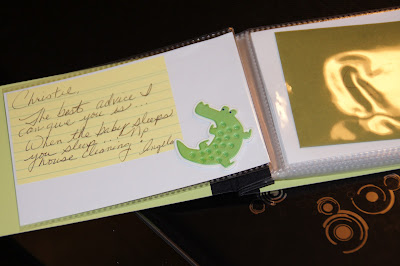 Christie
The best advice I
can give you is...
When the baby sleeps
you sleep... No
house cleaning - Angela